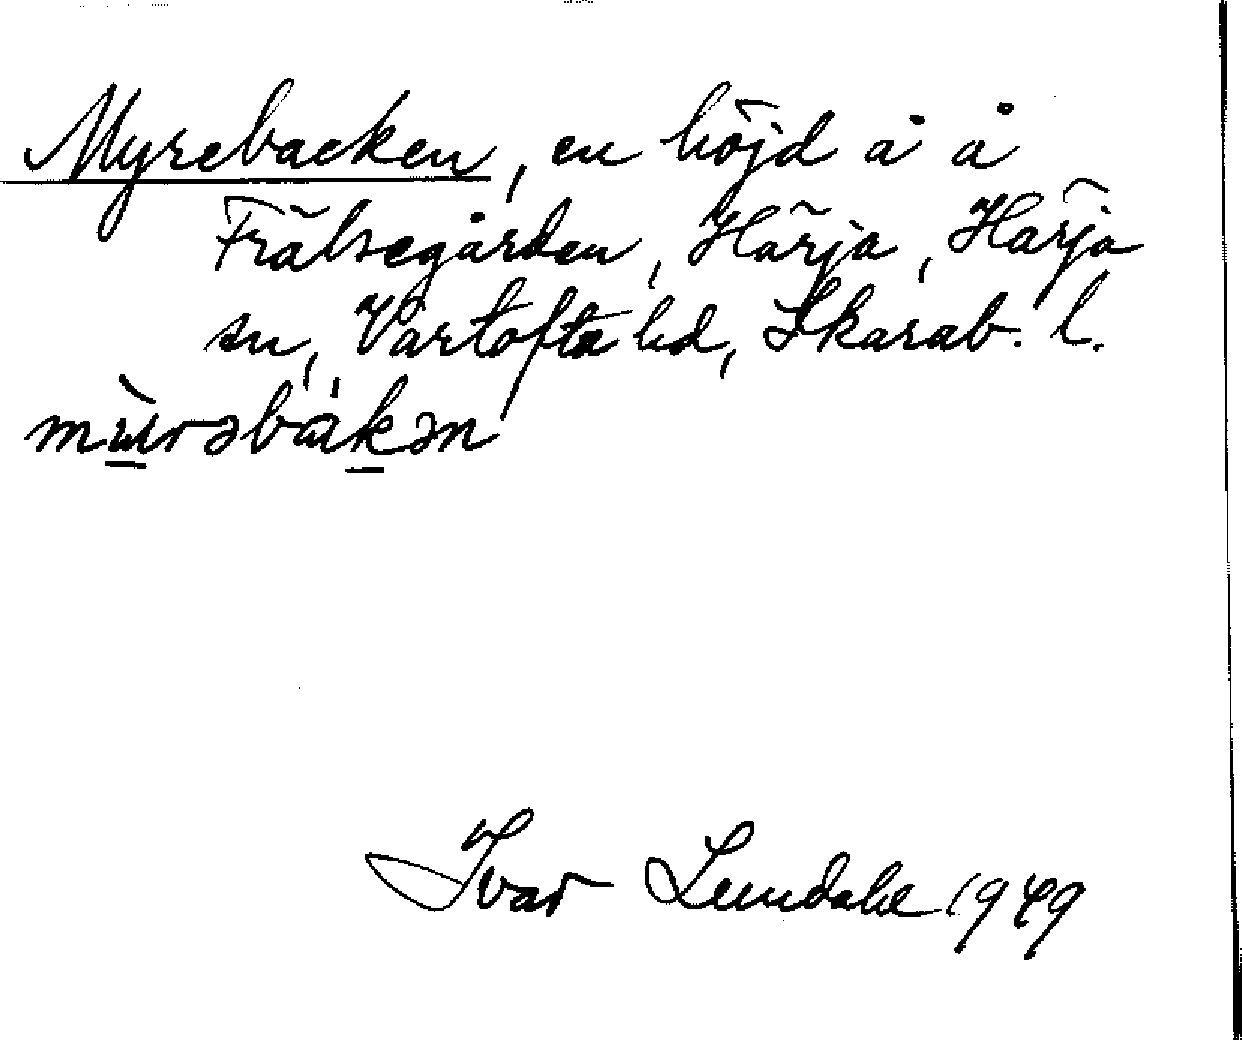 Myrebacken, en höjd å å
Frälsegården, Härja, Härja
sn, Vartofta hd, Skarab. l.
Ivar Lundahl 1949